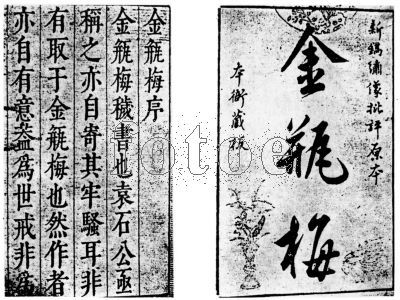 新鐫繡像批評原本
金瓶梅
本衙藏板
金瓶梅序
金瓶梅穢書也袁石公亟
稱之亦自寄其牢騷耳非
有取于金瓶梅也然作者
亦自有意蓋為世戒非為
totoe